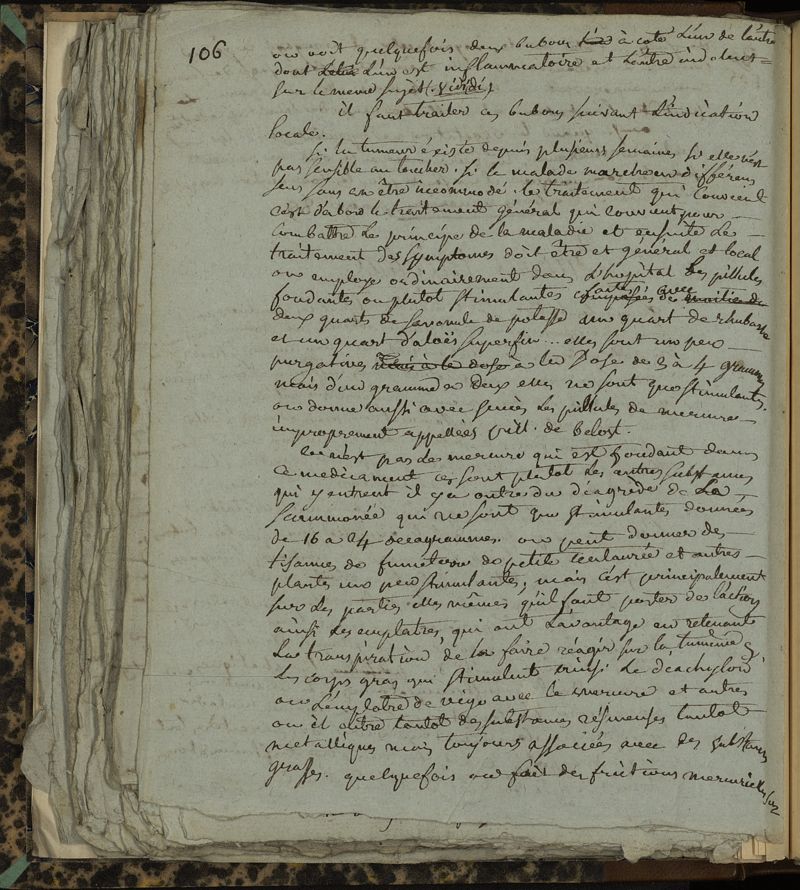 106
on voit quelquefois deux bubons à coté l'un de l'autre
dont l'un est inflammatoire et l'autre indolent
sur le meme sujet
il faut traiter ces bubons suivant l'indication
locale.
si la tumeur existe depuis plusieurs semaines si elle n'est
pas sensible au toucher. si le malade marche en différens
sens sans en être incommodé. le traitement qui convient
c'est d'abord le traitement général qui convient pour
combattre le principe de la maladie et ensuite le
traitement des symptomes doit être et général et local
on employe ordinairement dans l'hopital des pillules
fondantes ou plutot stimulantes faites avec
deux quarts de savonule de potasse un quart de rhubarbe
et un quart d'aloës superfin... elles sont un peu
purgatives à la dose de 3 à 4 grammes
mais d'un gramme a deux elles ne sont que stimulantes.
on donne aussi avec succès les pillules de mercure
improprement appellées pill. de belost.
ce n'est pas le mercure qui est fondant dans
ce medicament ce sont plutot les autres substances
qui y entrent il y a outre du diagrede de la
scammonée qui ne sont que stimulantes données
de 16 a 24 decagrammes. on peut donner des
tisannes de fumeterre de petite centaurée et autres
plantes un peu stimulantes, mais c'est principalement
sur les parties elles mêmes qu'il faut porter de l'action
ainsi les emplatres, qui ont l'avantage en retenant
la transpiration de la faire réagir sur la tumeur
les corps gras qui stimulent ainsi le diachylon
ou l'emplatre de vigo avec le mercure et autres
ou il entre tantot des substances résineuses tantot
metalliques mais toujours associées avec des substances
grasses. quelquefois on fait des frictions mercurielles sur